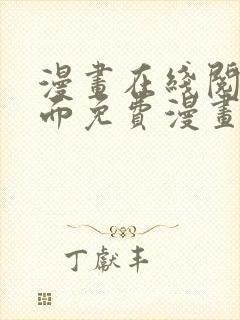 漫畫在綫閱
面免費漫畫
丁獻丰